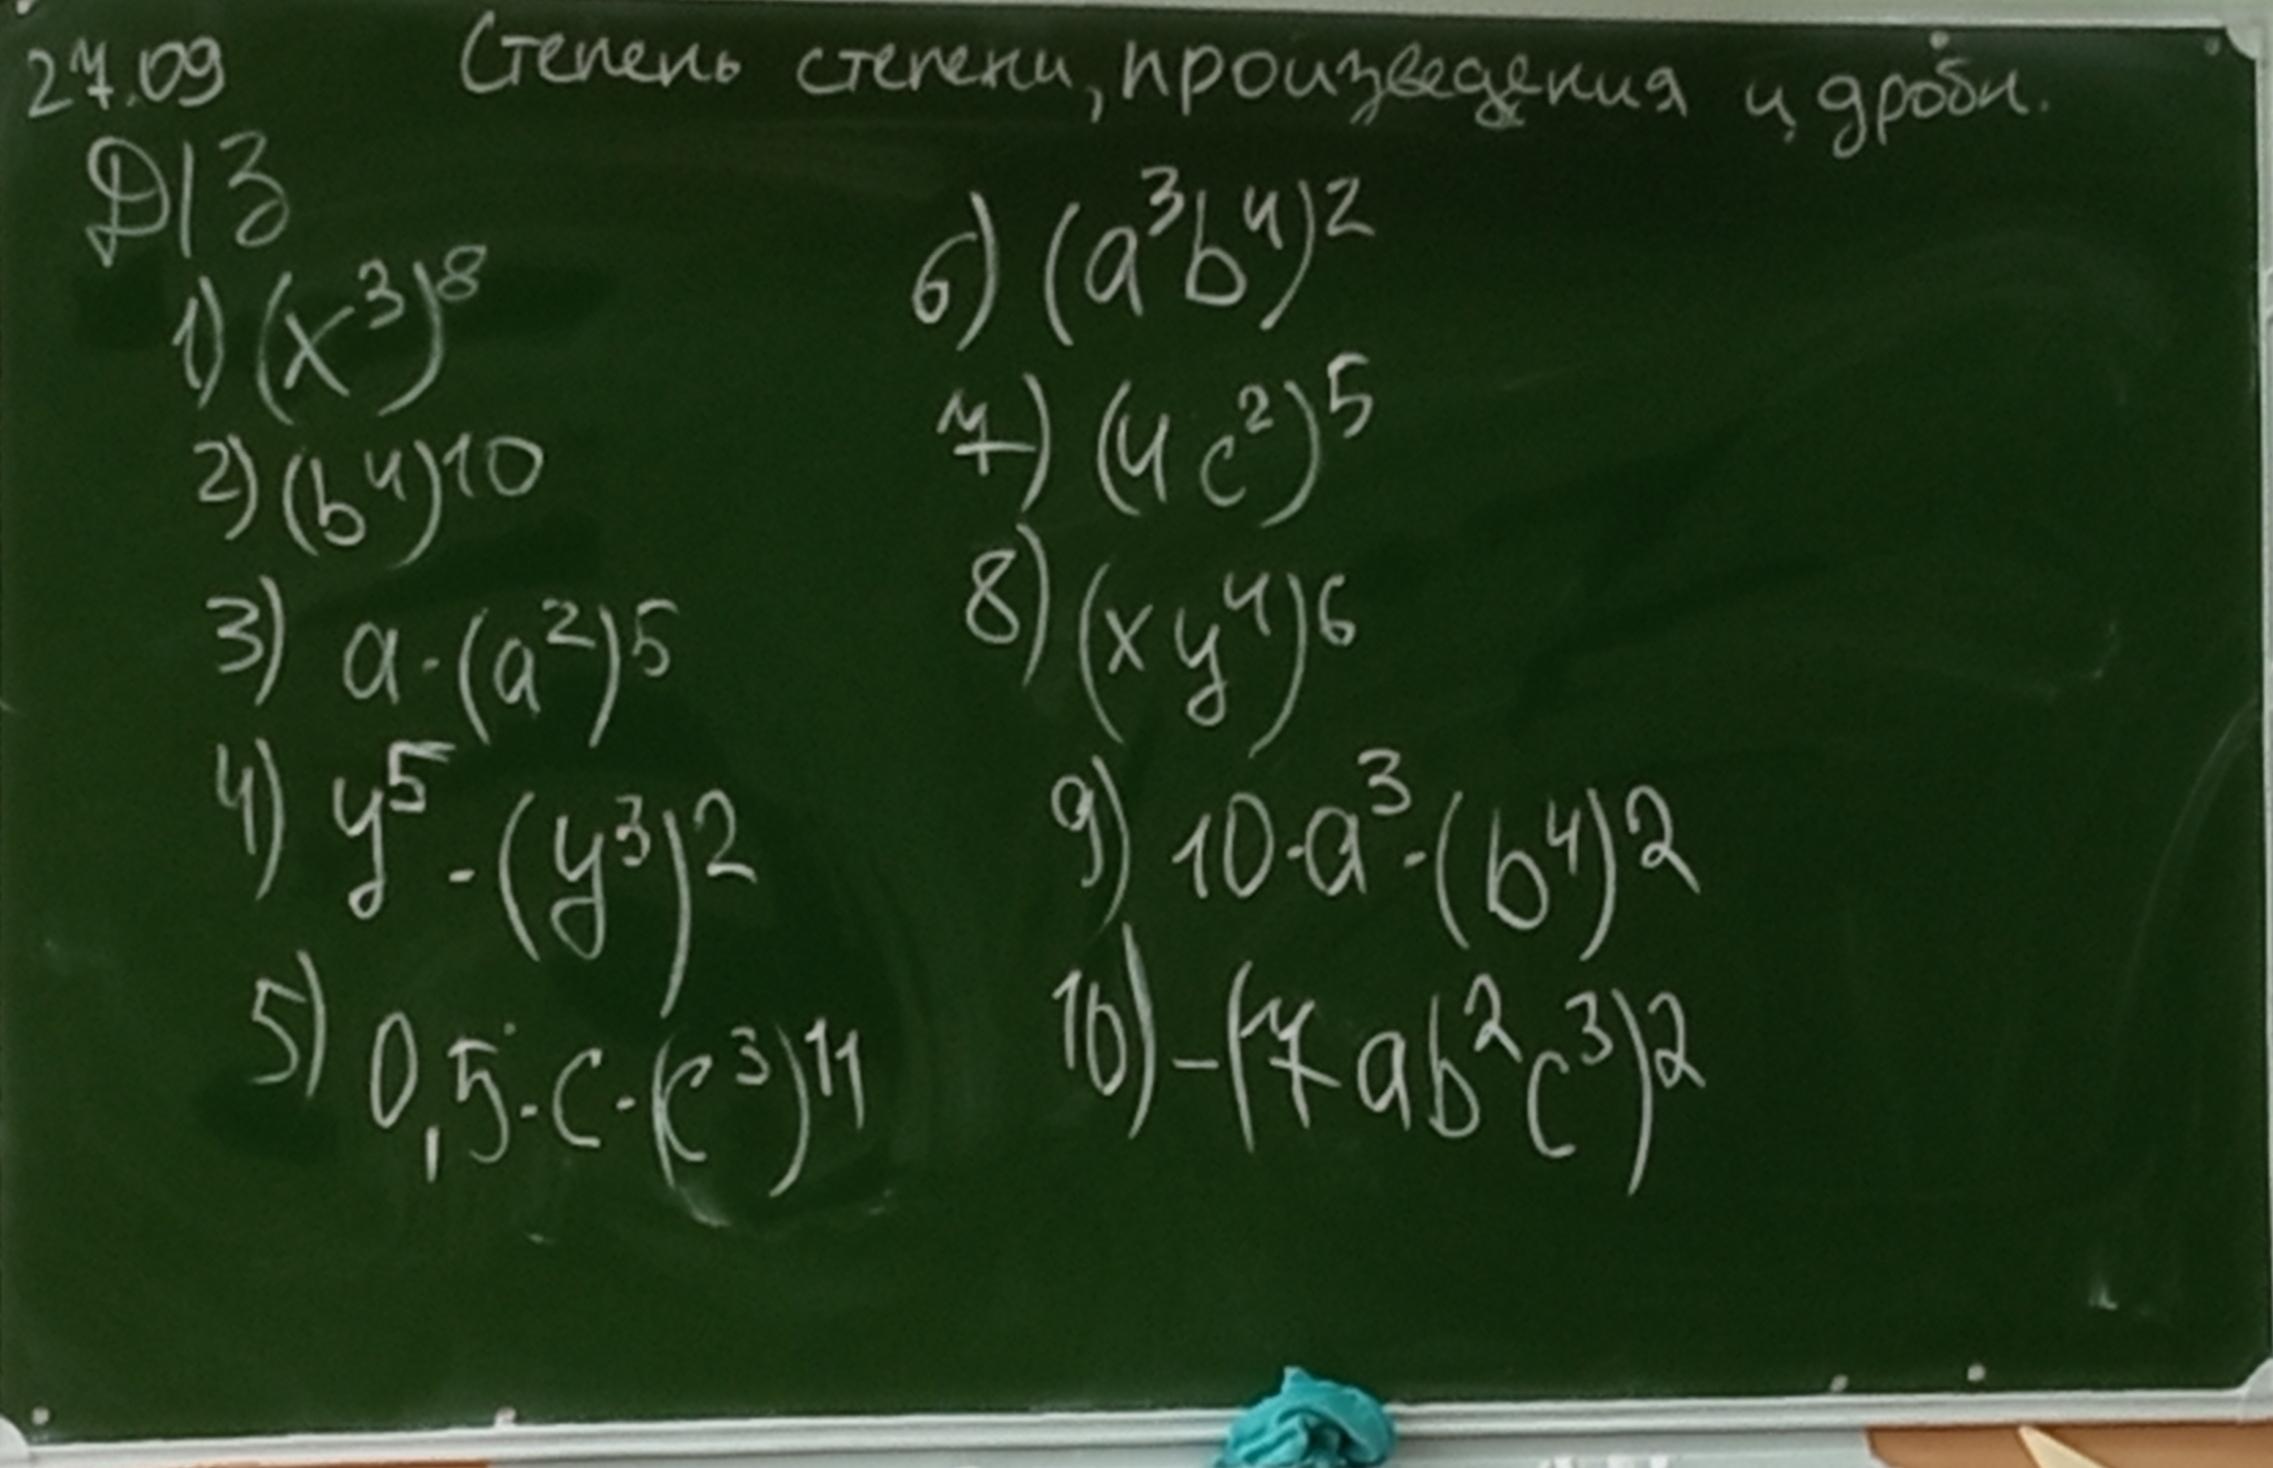 27.09 Степень степени, произведения и дроби.
Д/З
1) (x³)⁸
2) (b⁴)¹⁰
3) a·(a²)⁵
4) y⁵·(y³)²
5) 0,5·c·(c³)¹¹
6) (a³b⁴)²
7) (4c²)⁵
8) (xy⁴)⁶
9) 10·a³·(b⁴)²
10) -(7ab²c³)²